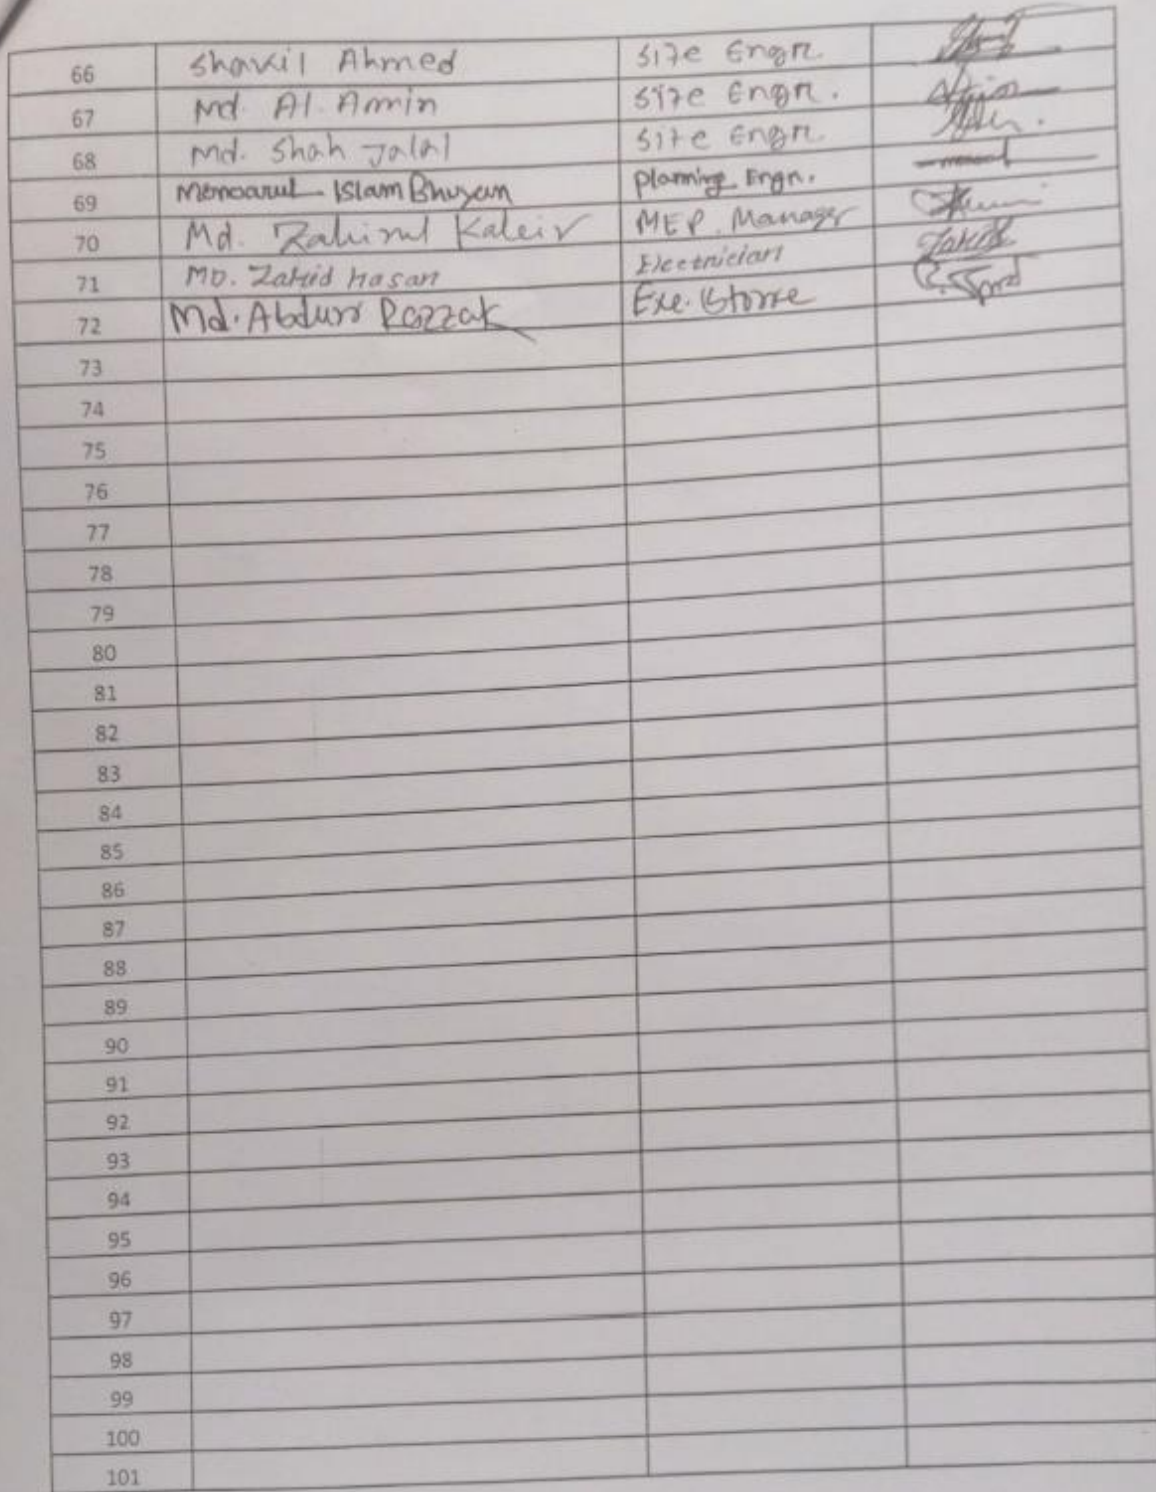 66 Shakil Ahmed Site Engr.
67 Md. Al. Amin Site Engr.
68 Md. Shah Jalal Site Engr.
69 Islam Bhuyan Planning Engr.
70 Md. Zahirul Kabir MEP. Manager
71 MD. Zahid Hasan Electrician Zahid
72 Md. Abdur Razzak Exe. Store
73
74
75
76
77
78
79
80
81
82
83
84
85
86
87
88
89
90
91
92
93
94
95
96
97
98
99
100
101